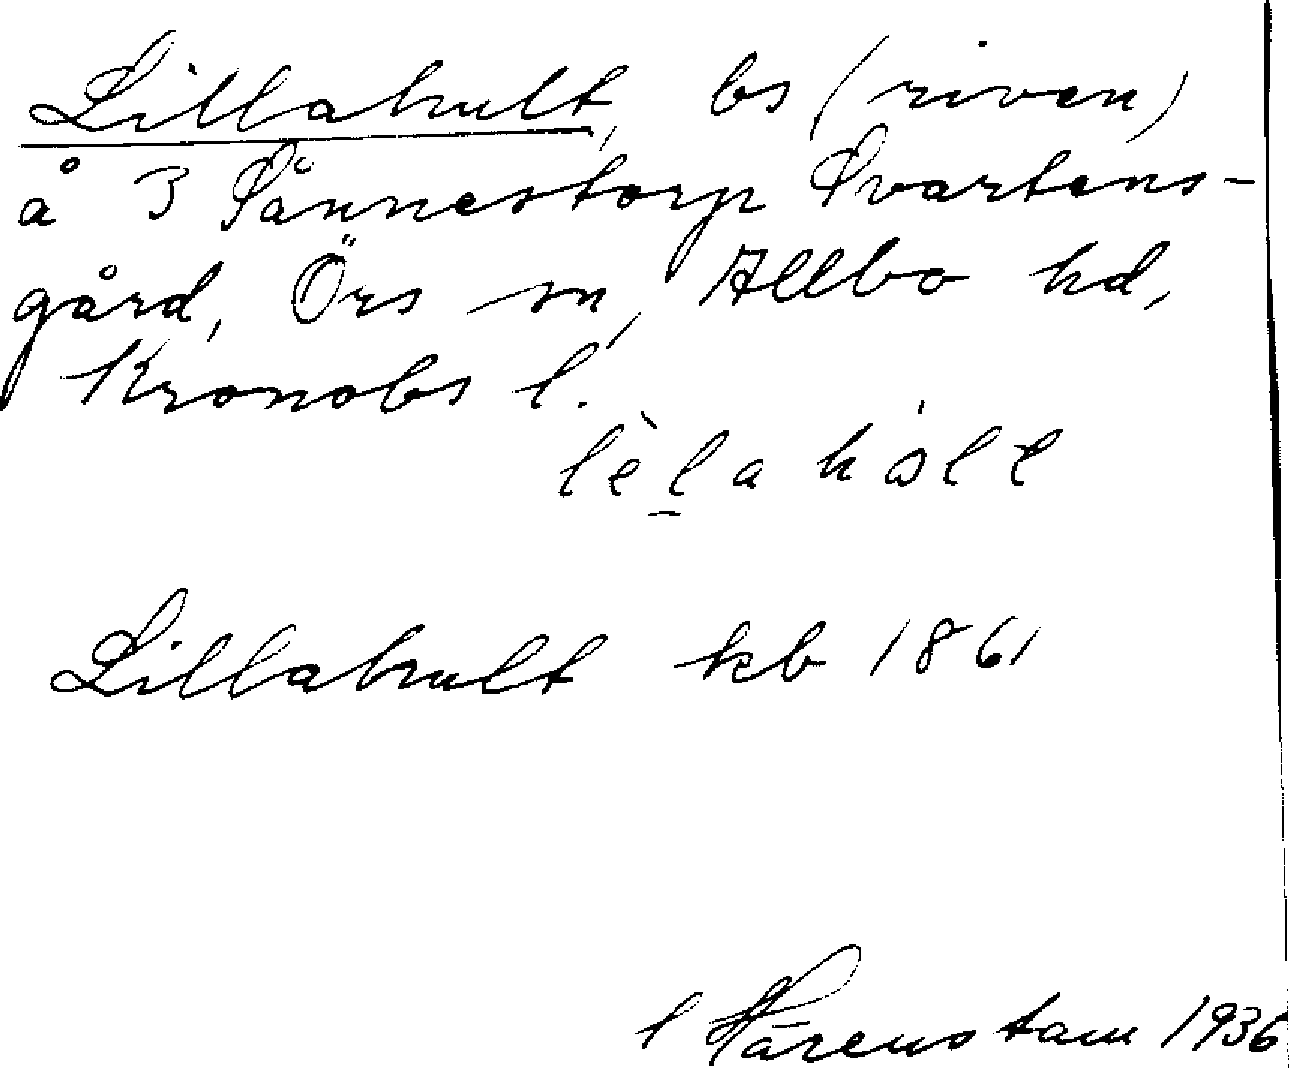 Lillahult, bs (riven)
å 3 Sånnestorp Svartens-
gård, Örs sn, Allbo hd,
Kronobs l.
lèḻa hɷ́ll
Lillahult kb 1861
Härenstam 1936